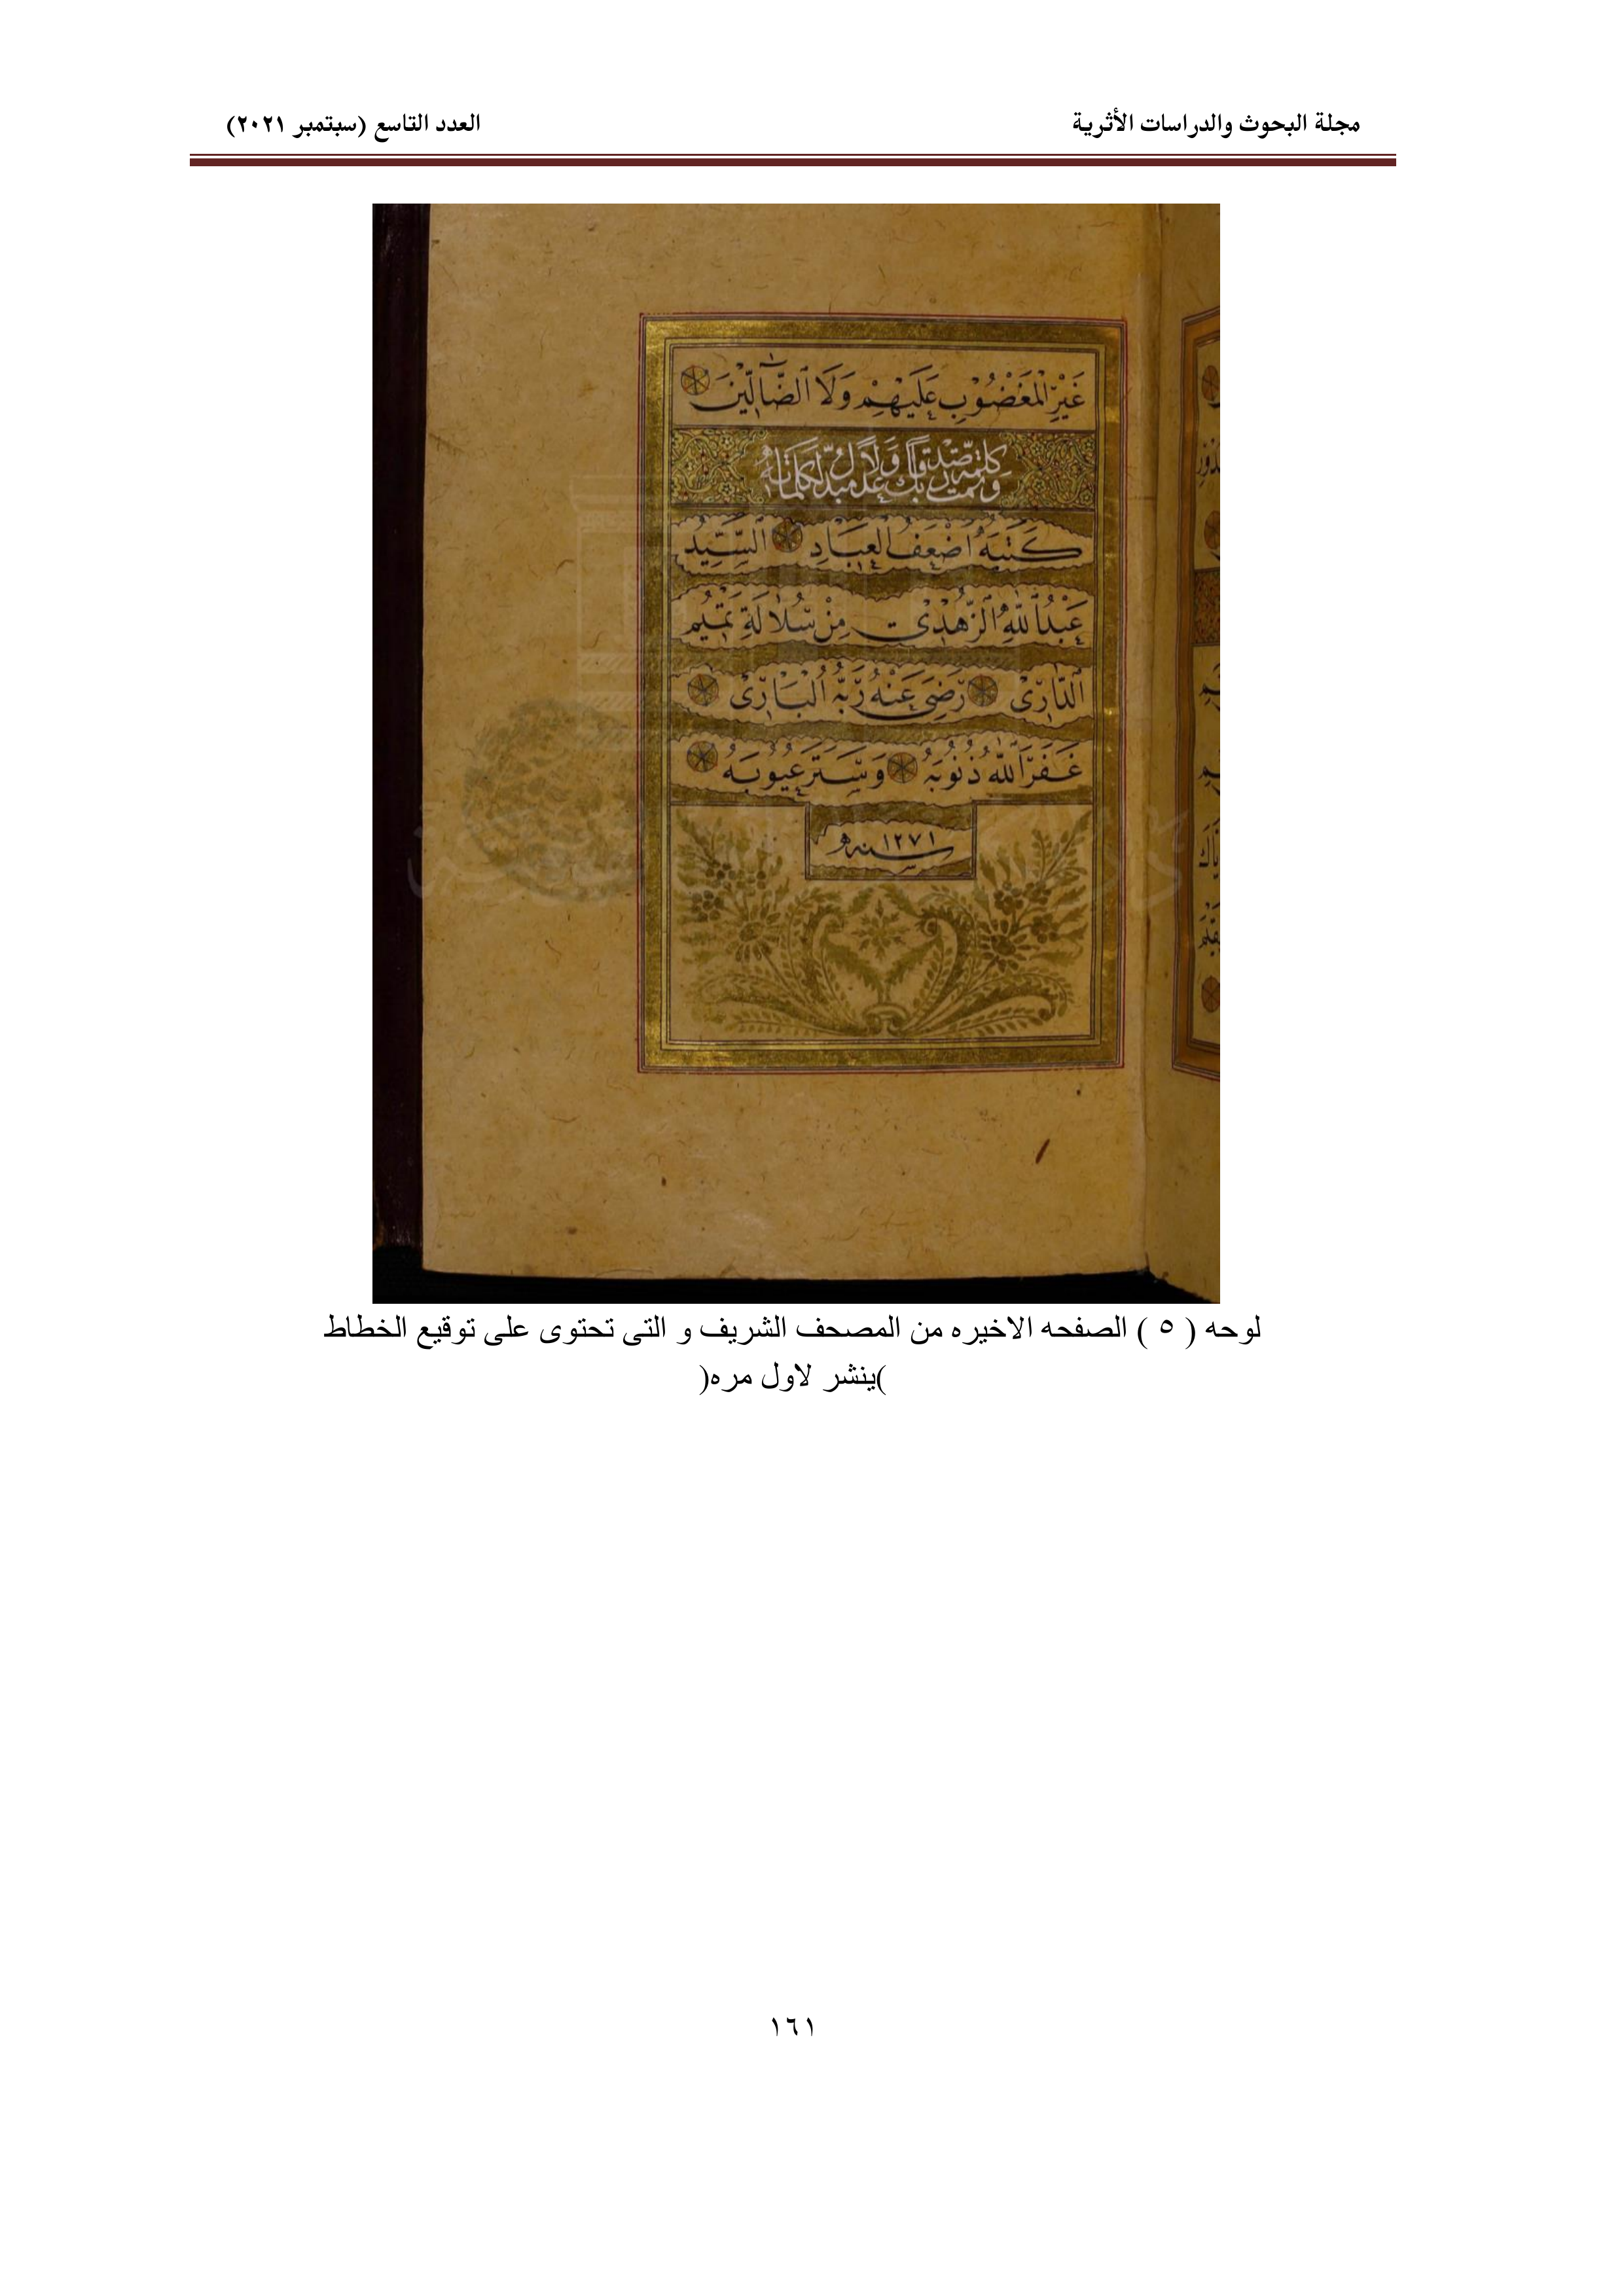 مجلة البحوث والدراسات الأثرية
العدد التاسع (سبتمبر ٢٠٢١)
غَيْرِ الْمَغْضُوبِ عَلَيْهِمْ وَلَا الضَّالِّينَ
وتمت كلمة ربك صدقا وعدلا لا مبدل لكلماته
كَتَبَهُ اَضْعَفُ الْعِبَادِ السَّيِّدُ
عَبْدُاللهِ الزُّهْدِىْ مِنْ سُلَالَةِ تَمِيْمِ
الدَّارِىْ رَضِىَ عَنْهُ رَبُّهُ الْبَارِىْ
غَفَرَ اللهُ ذُنُوبَهُ وَسَتَرَ عُيُوبَهُ
سنه ١٢٧١
لوحه ( ٥ ) الصفحه الاخيره من المصحف الشريف و التى تحتوى على توقيع الخطاط
)ينشر لاول مره(
١٦١